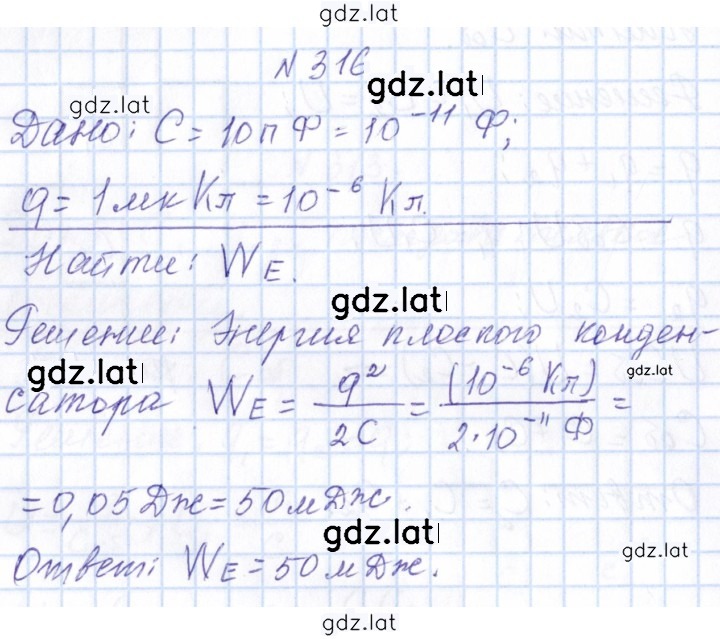 gdz.lat
N 316
gdz.lat
gdz.lat
Дано: C = 10 пФ = 10⁻¹¹ Ф;
q = 1 мкКл = 10⁻⁶ Кл.
Найти: W_E.
gdz.lat
Решение: Энергия плоского конден-
gdz.lat
gdz.lat
сатора W_E = q²/2C = (10⁻⁶ Кл)/2·10⁻¹¹ Ф =
= 0,05 Дж = 50 мДж.
gdz.lat
Ответ: W_E = 50 мДж.
gdz.lat
gdz.lat